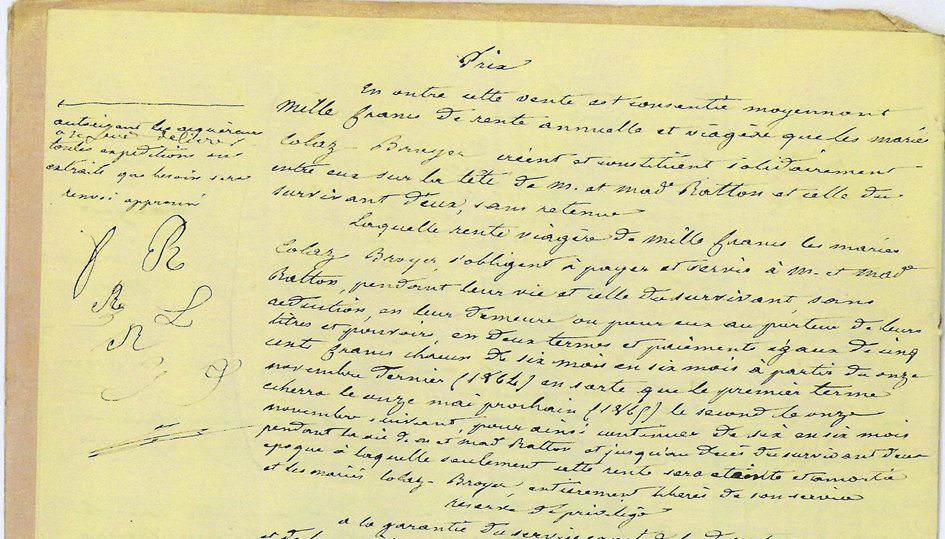 Prix
En outre cette vente est consentie moyennant
mille francs de rente annuelle et viagère que les mariés
Colaz Broyer créent et constituent solidairement
entre eux sur la tête de m. et mad Ratton et celle du
survivant d'eux, sans retenue
Laquelle rente viagère de mille francs les mariés
Colaz Broyer s'obligent à payer et servir à m. et mad
Ratton, pendant leur vie et celle du survivant sans
déduction, en leur demeure ou pour eux au porteur de leurs
titres et pouvoirs en deux termes et paiements égaux de cinq
cent francs chacun de six mois en six mois à partir du onze
novembre dernier (1864) en sorte que le premier terme
écherra le onze mai prochain (1865) le second le onze
novembre suivant, pour ainsi continuer de six en six mois
pendant la vie de m et mad Ratton et jusqu'au décès du survivant d'eux
époque à laquelle seulement cette rente sera éteinte et amortie
et les mariés Colaz-Broyer entièrement libérés de son service
réserve de privilège
à la garantie du service
autorisant les acquéreurs
à se faire délivrer
toutes expéditions ou
extraits que besoin sera
renvoi approuvé
R
L
R